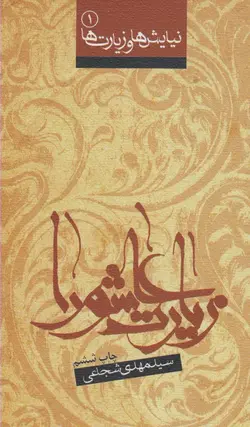 نیایش‌ها و زیارت‌ها
۱
زیارت عاشورا
چاپ ششم
سیدمهدی شجاعی